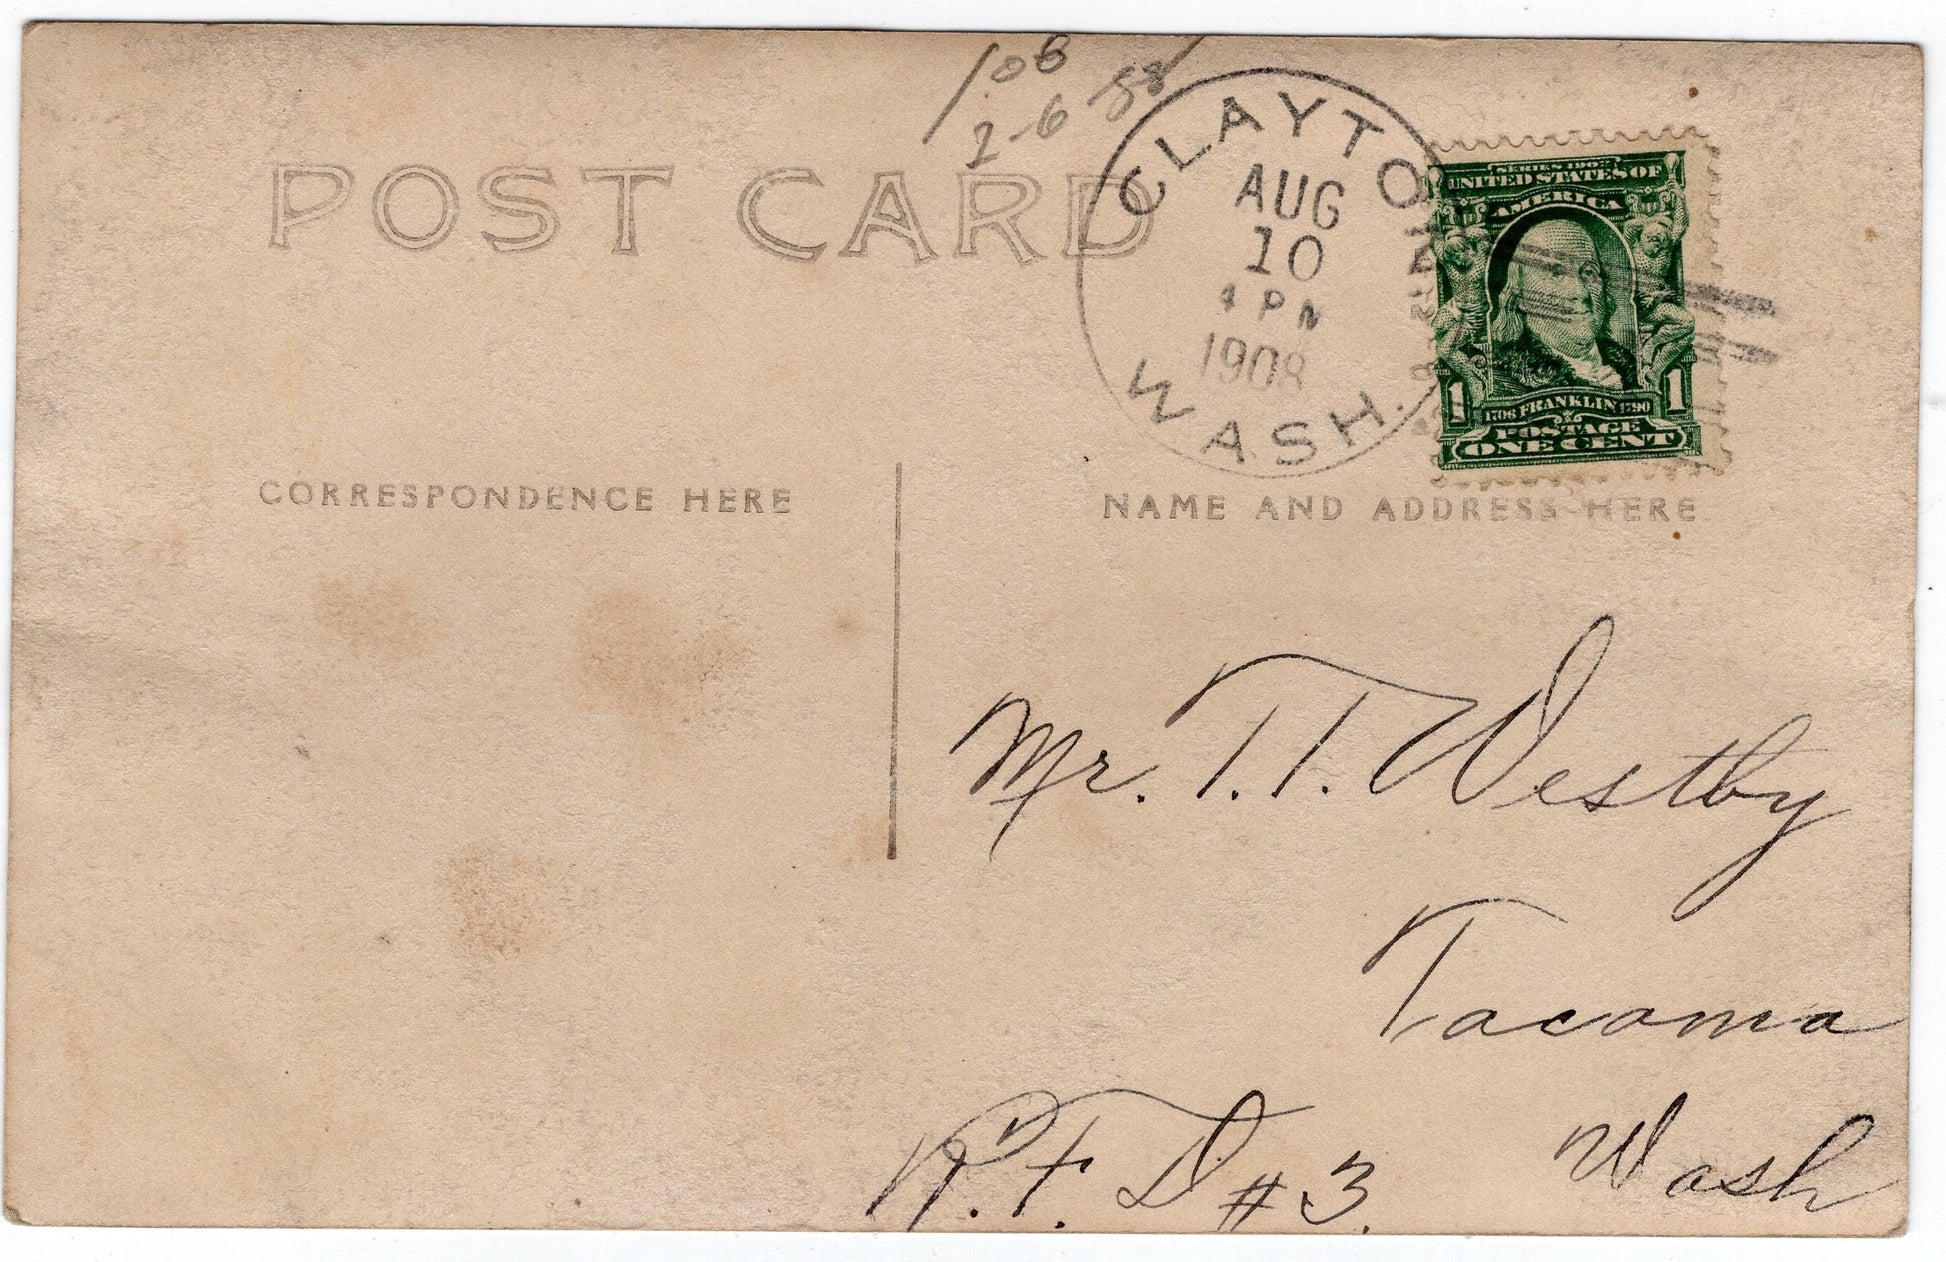 1.06
2-6-58
POST CARD
CLAYTON
AUG
10
4 PM
1908
WASH.
SERIES 1902
UNITED STATES OF
AMERICA
1 1706 FRANKLIN 1790 1
POSTAGE
ONE CENT
CORRESPONDENCE HERE
NAME AND ADDRESS HERE
Mr. T. T. Westby
Tacoma
Wash
R.F.D #3.